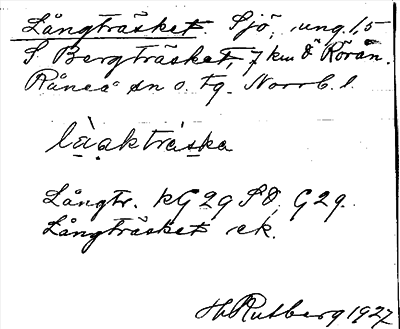 Långträsket. Sjö, ung. 1,5
S Bergträsket, 7 km Ö Rörån.
Råneå sn o. tg. Norrb. l.
là̱a̱kträ̀ska
Långtr. kG 29 SÖ, G 29.
Långträsket ek.
H. Rutberg 1927